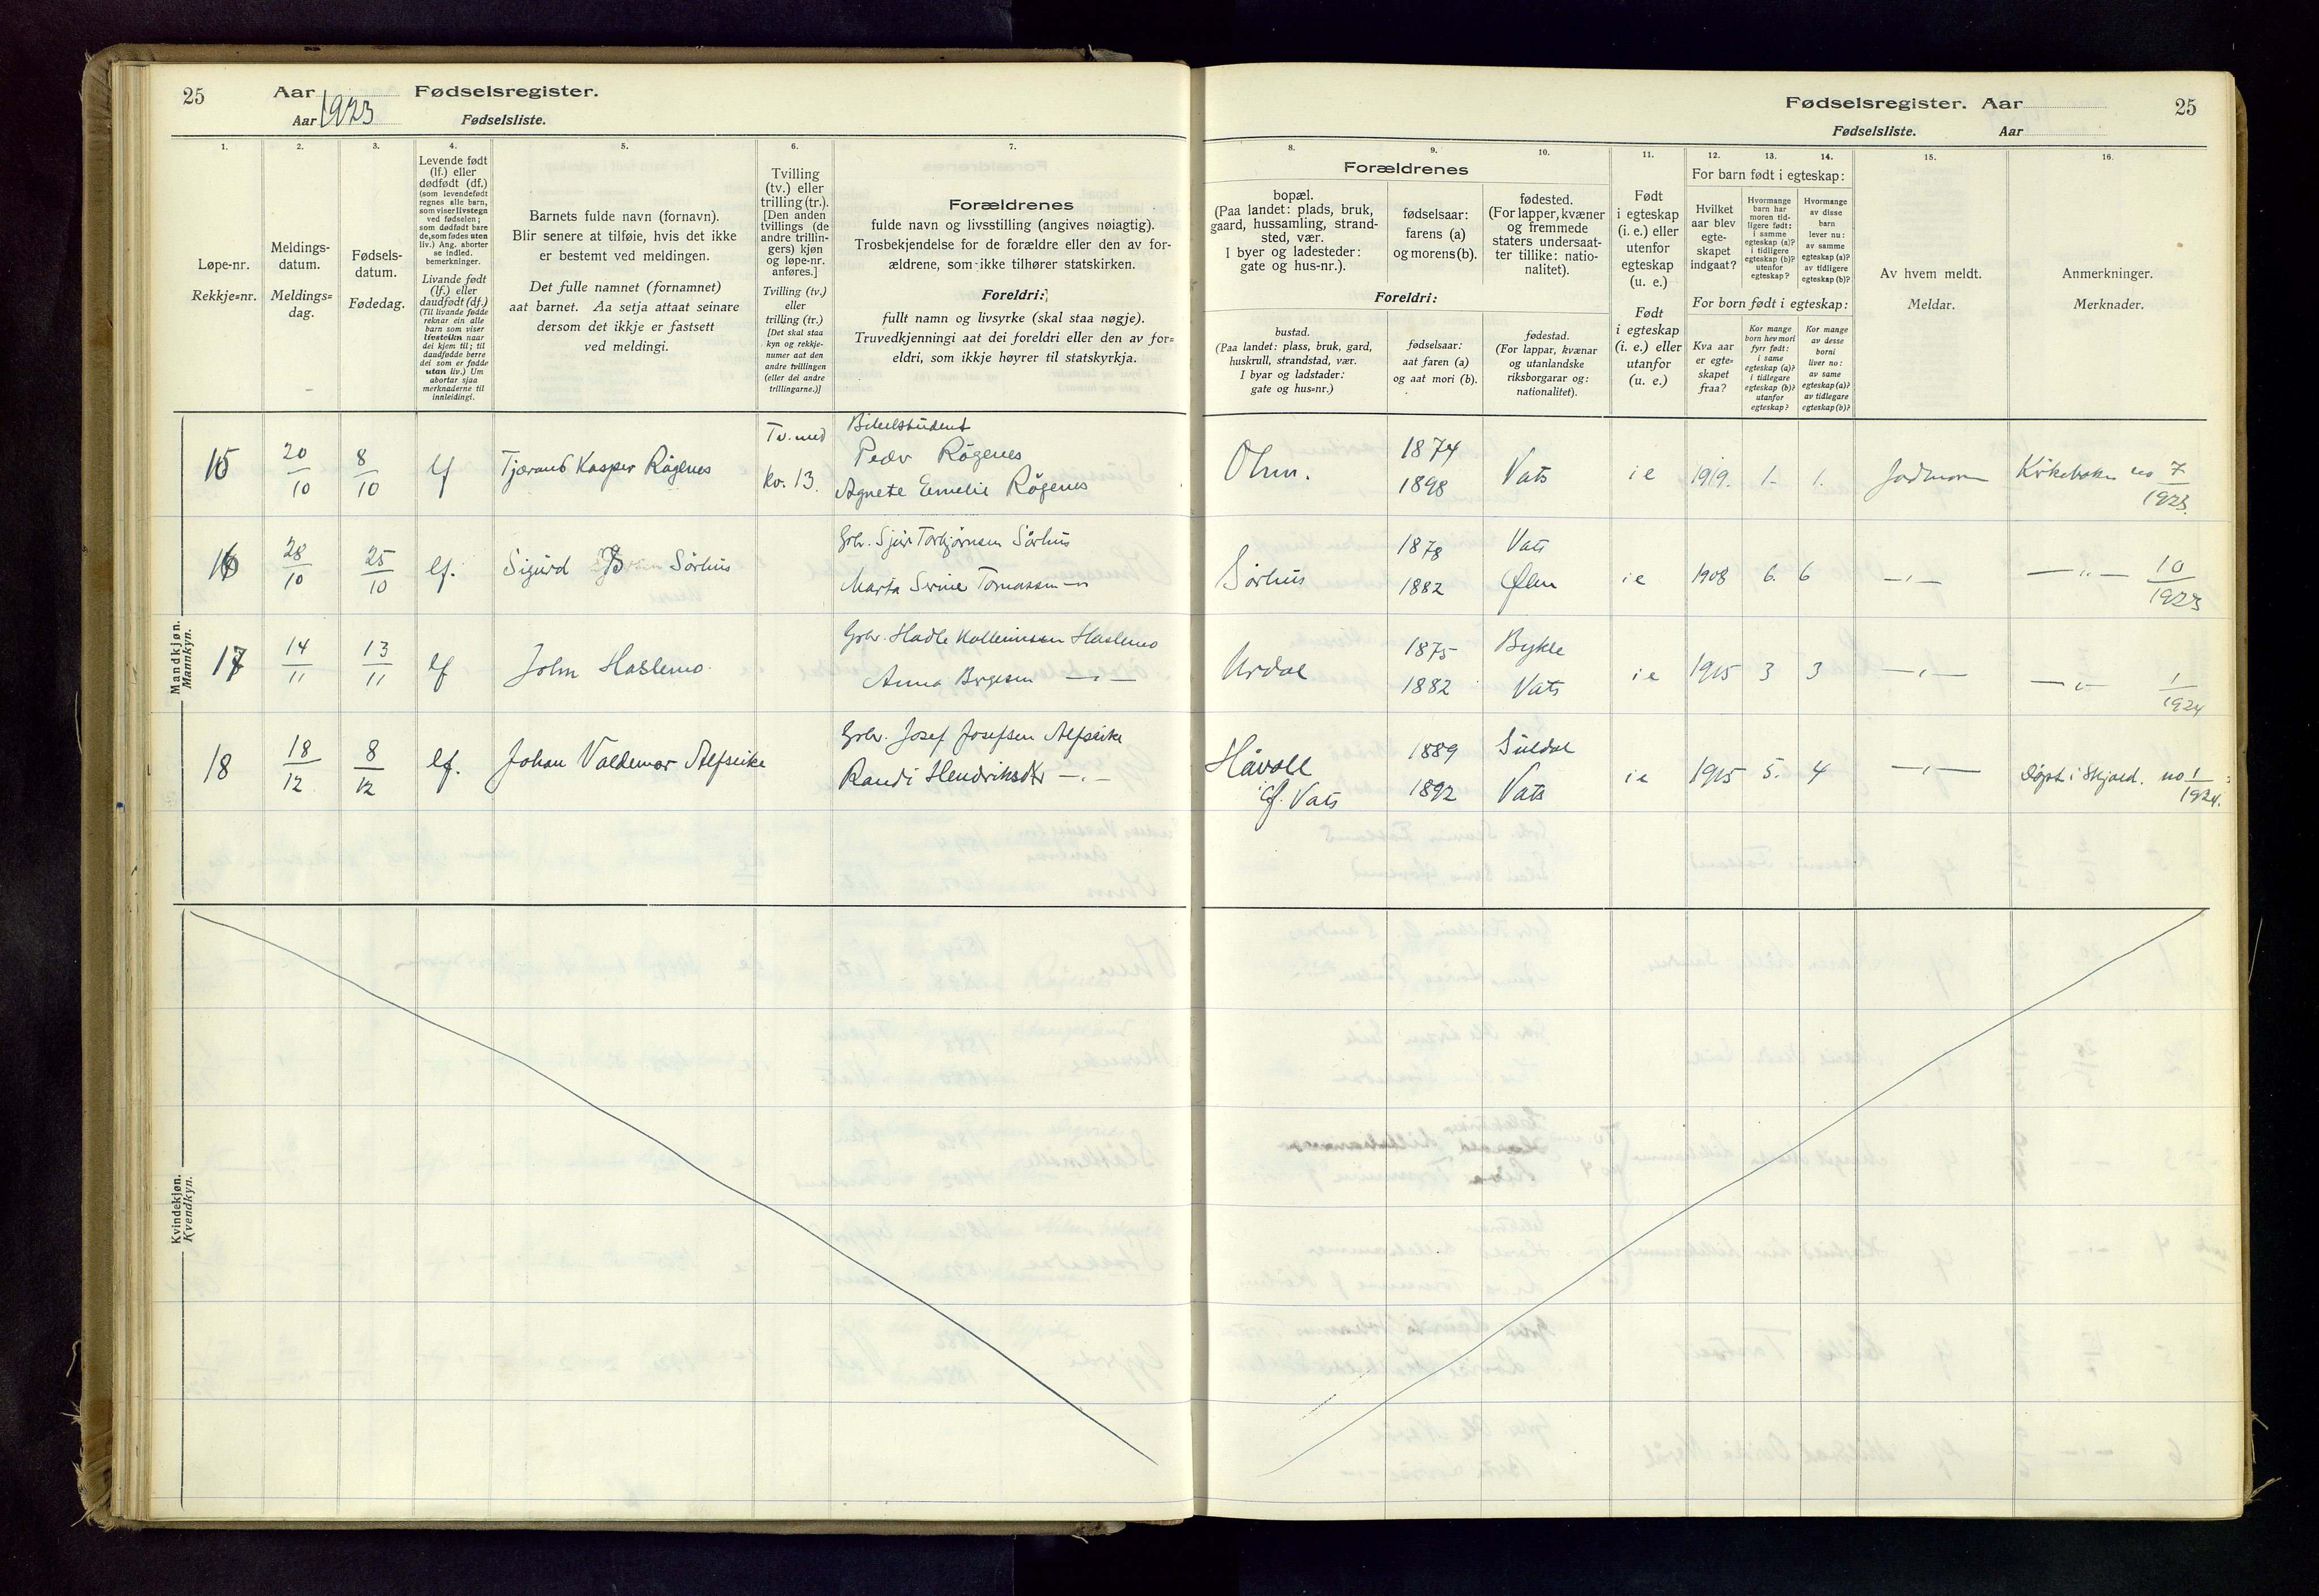 25 Aar Fødselsregister.
Aar 1923 Fødselsliste.
Fødselsregister. Aar 25
Fødselsliste. Aar
1. 2. 3. 4. 5. 6. 7.
Løpe-nr.
Rekkje=nr.
Meldings-
datum.
Meldings=
dag.
Fødsels-
datum.
Fødedag.
Levende født
(lf.) eller
dødfødt (df.)
(som levendefødt
regnes alle barn,
som viser livstegn
ved fødselen;
som dødfødt bare
de, som fødes uten
liv.) Ang. aborter
se indled.
bemerkninger.
Livande født
(lf.) eller
daudfødt (df.)
(Til livande fødde
reknar ein alle
barn som viser
livsteikn naar
dei kjem til; til
daudfødde berre
dei som er fødde
utan liv.) Um
abortar sjaa
merknaderne til
innleidingi.
Barnets fulde navn (fornavn).
Blir senere at tilføie, hvis det ikke
er bestemt ved meldingen.
Det fulle namnet (fornamnet)
aat barnet. Aa setja attaat seinare
dersom det ikkje er fastsett
ved meldingi.
Tvilling
(tv.) eller
trilling (tr.).
[Den anden
tvillings (de
andre trillin-
gers) kjøn
og løpe-nr.
anføres.]
Tvilling (tv.)
eller
trilling (tr.)
[Det skal staa
kyn og rekkje-
numer aat den
andre tvillingen
(eller dei andre
trillingarne.)]
Forældrenes
fulde navn og livsstilling (angives nøiagtig).
Trosbekjendelse for de forældre eller den av for-
ældrene, som ikke tilhører statskirken.
Foreldri:
fullt namn og livsyrke (skal staa nøgje).
Truvedkjenningi aat dei foreldri eller den av for=
eldri, som ikkje høyrer til statskyrkja.
8. 9. 10. 11. 12. 13. 14. 15. 16.
Forældrenes
bopæl.
(Paa landet: plads, bruk,
gaard, hussamling, strand-
sted, vær.
I byer og ladesteder:
gate og hus-nr.).
fødselsaar:
farens (a)
og morens (b).
fødested.
(For lapper, kvæner
og fremmede
staters undersaat-
ter tillike: natio-
nalitet).
Foreldri:
bustad.
(Paa landet: plass, bruk, gard,
huskrull, strandstad, vær.
I byar og ladstader:
gate og hus=nr.)
fødselsaar:
aat faren (a)
og aat mori (b).
fødestad.
(For lappar, kvænar
og utanlandske
riksborgarar og:
nationalitet).
Født
i egteskap
(i. e.) eller
utenfor
egteskap
(u. e.)
Født
i egteskap
(i. e.) eller
utanfor
(u. e.)
For barn født i egteskap:
Hvilket
aar blev
egte-
skapet
indgaat?
Hvormange
barn har
moren tid-
ligere født:
i samme
egteskap (a)?
i tidligere
egteskap (b)?
utenfor
egteskap?
Hvormange
av disse
barn
lever nu:
av samme
egteskap (a)?
av tidligere
egteskap (b)?
For born født i egteskap:
Kva aar
er egte=
skapet
fraa?
Kor mange
born hev mori
fyrr født:
i same
egteskap (a)?
i tidlegare
egteskap (b)?
utanfor
egteskap?
Kor mange
av desse
borni
liver no:
av same
egteskap (a)?
av tidlegare
egteskap (b)?
Av hvem meldt.
Meldar.
Anmerkninger.
Merknader.
Mandkjøn.
Mannkyn.
15 20/10 8/10 lf Tjærand Kasper Rögenes Tv. med kv. 13.
Bibelstudent
Peder Rögenes
Agnete Emelie Rögenes
1874
1898 Vats i e 1919. 1. 1. Jordmoren Kirkeboken no 7/1923.
16 28/10 25/10 lf. Sigurd Sörhus
Grbr. Sjur Torbjørnsen Sörhus
Marta Serine Tomassen —"—
Sörhus 1878 Vats
1882 Ølen i e 1908 6. 6 —"— —"— 10/1923
17 14/11 13/11 lf John Haslemo
Grbr. Hadle Haslemo
Anna —"—
Urdal 1875 Bykle
1882 Vats i e 1915 3 3 —"— —"— 1/1924
18 18/12 8/12 lf. Johan Valdemar Alfseike
Grbr. Josef Josefsen Alfseike
Randi Hendriksdtr —"—
1889 Suldal
Vats 1892 Vats i e 1915 5. 4 —"— Döpt i Skjold. no 1/1924.
Kvindekjøn.
Kvendkyn.